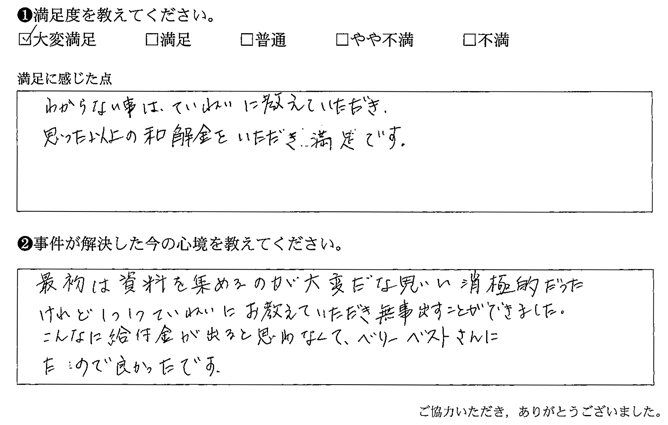 ❶満足度を教えてください。
☑大変満足 □満足 □普通 □やや不満 □不満
満足に感じた点
わからない事は、ていねいに教えていただき、
思った以上の和解金をいただき満足です。
❷事件が解決した今の心境を教えてください。
最初は資料を集めるのが大変だな思い消極的だった
けれど1つ1つていねいにお教えていただき無事出すことができました。
こんなに給付金が出ると思わなくて、ベリーベストさんに
た のので良かったです。
ご協力いただき，ありがとうございました。